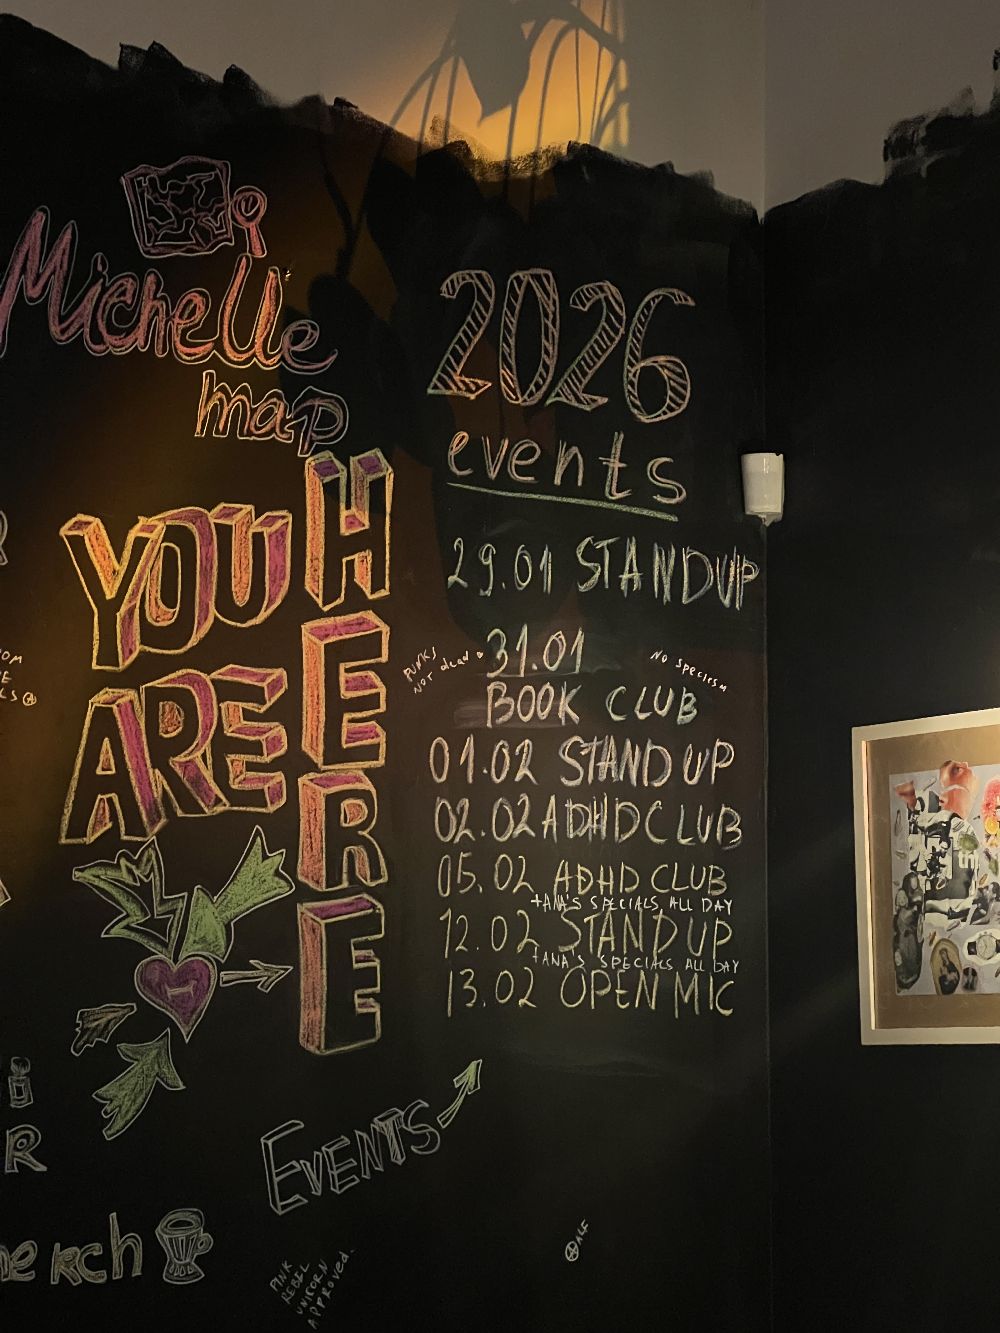 Michelle
map
YOU
ARE
HERE
2026
events
29.01 STANDUP
PUNKS
NOT dead
31.01
No speciesm
BOOK CLUB
01.02 STAND UP
02.02 ADHD CLUB
05.02 ADHD CLUB
+ANA'S SPECIALS ALL DAY
12.02 STAND UP
+ANA'S SPECIALS ALL DAY
13.02 OPEN MIC
EVENTS
PINK
REBEL
UNICORN
APPROVED.
ALF